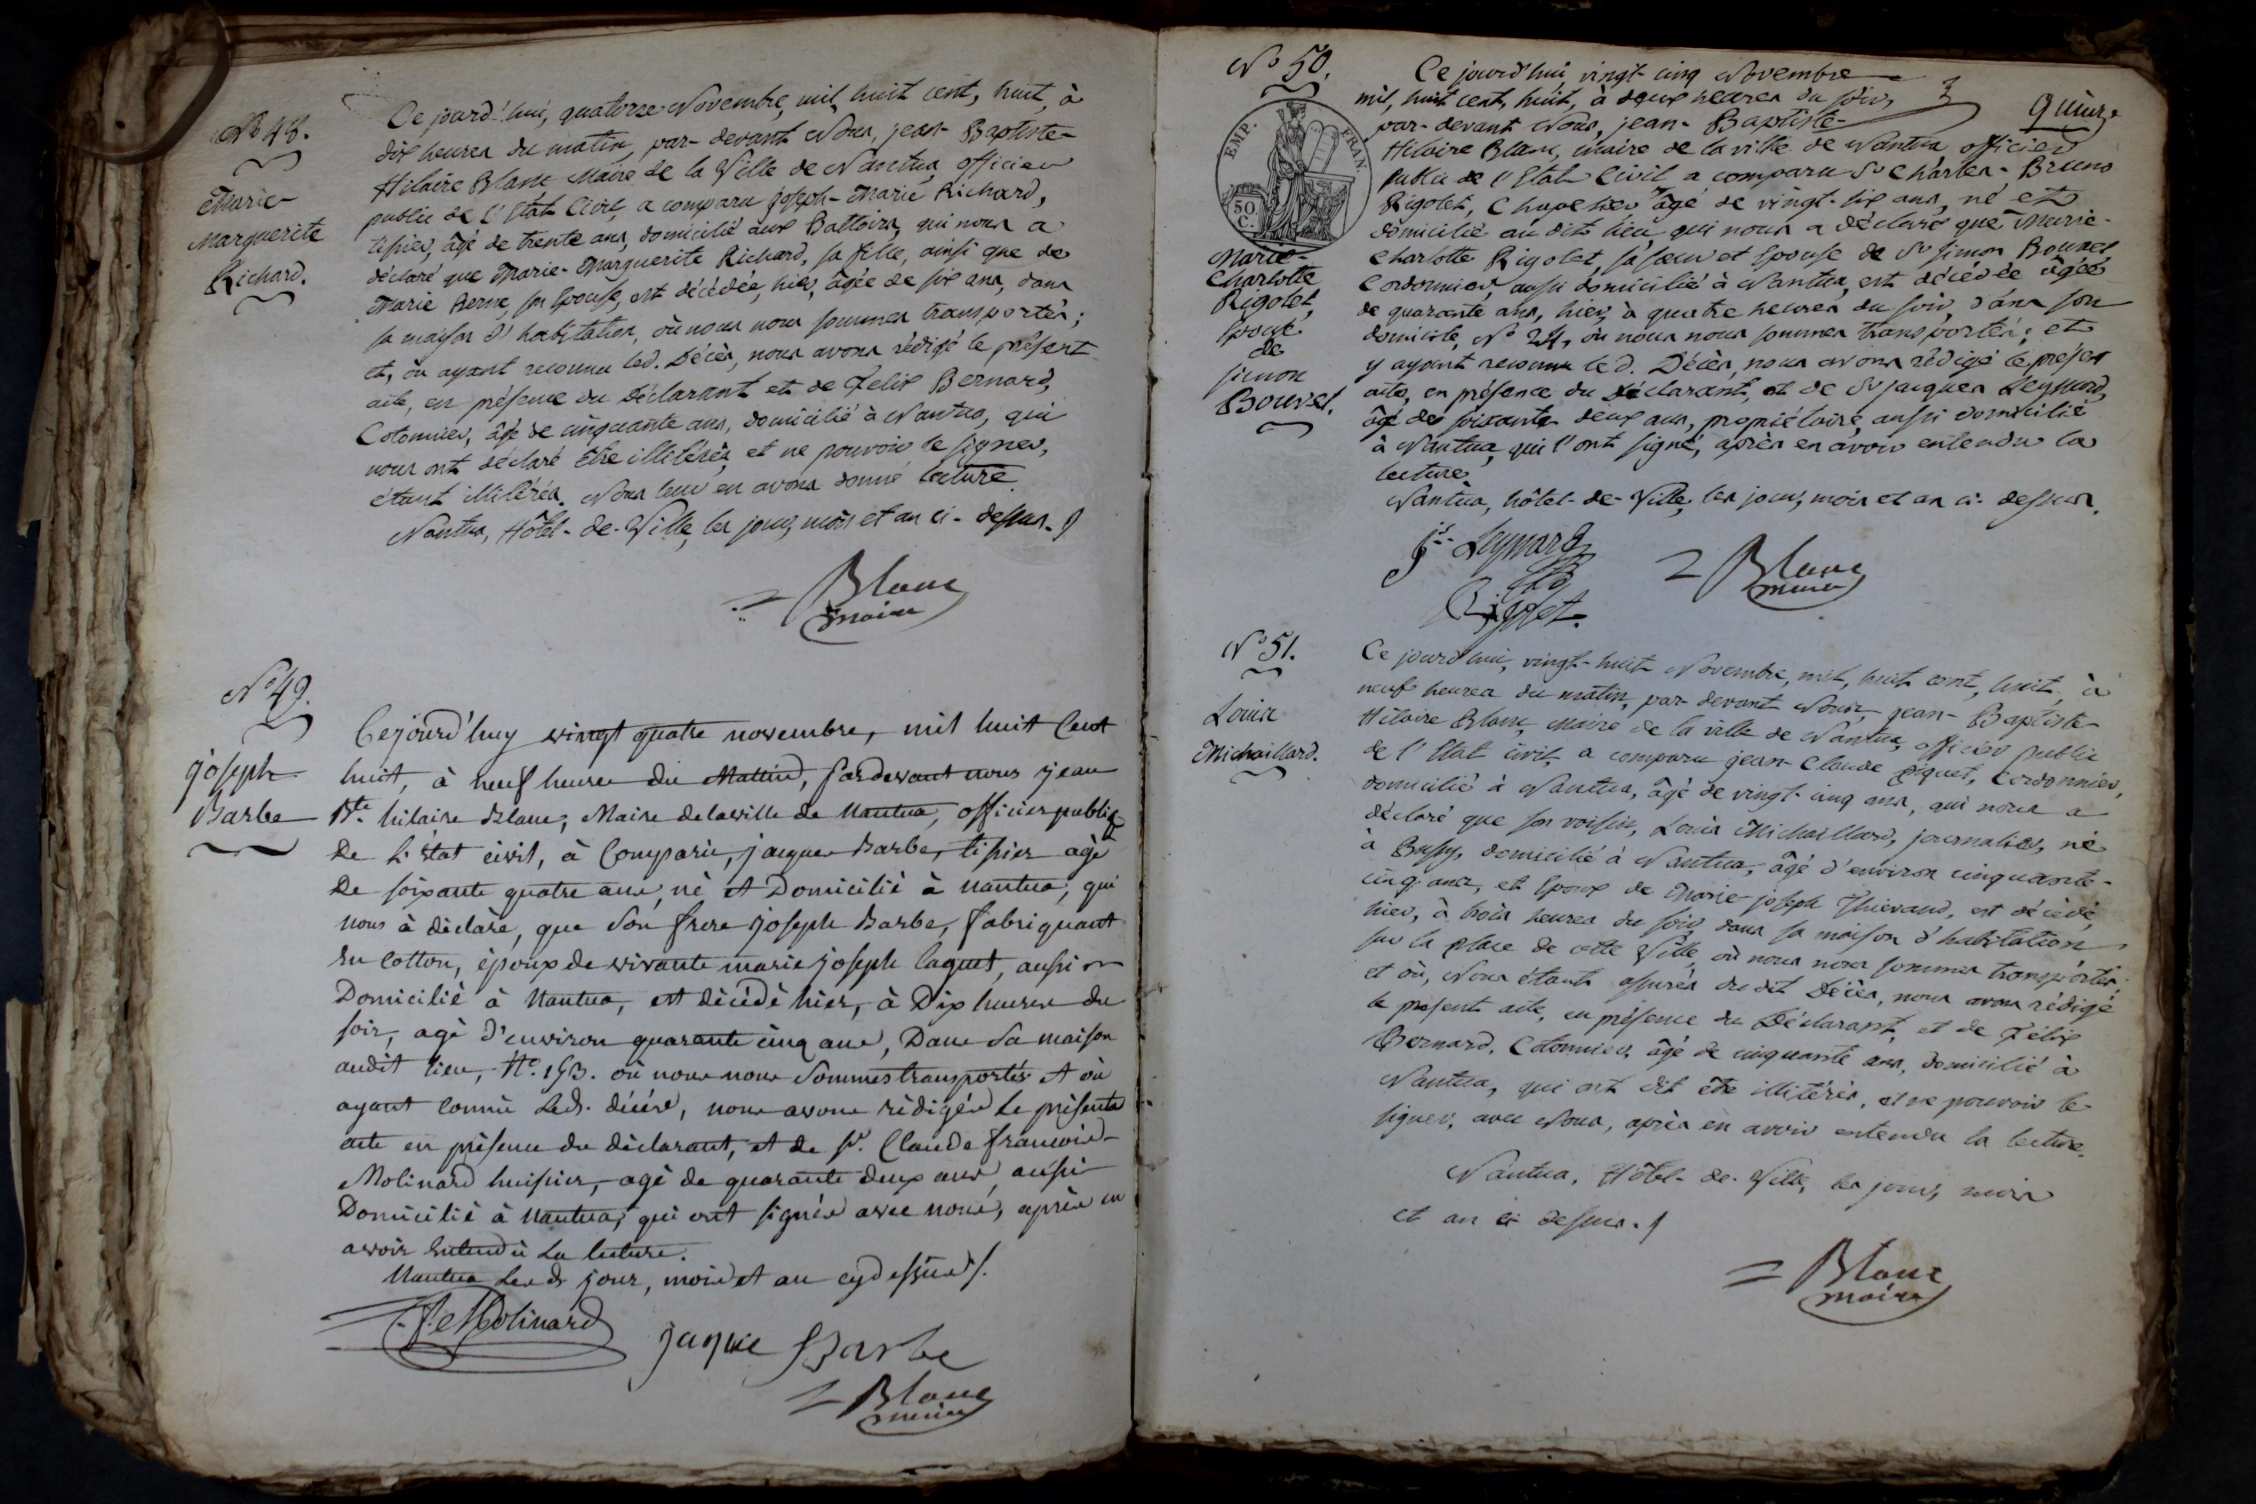 N° 48.
Marie-
Marguerite
Richard.
Ce jourd'hui, quatorze Novembre, mil, huit cent, huit, à
dix heures du matin, par-devant Nous, jean-Baptiste-
Hilaire Blanc Maire de la Ville de Nantua, officier
public de l'Etat Civil, a comparu joseph-Marie Richard,
tissier, âgé de trente ans, domicilié aux Battoirs, qui nous a
déclaré que Marie-Marguerite Richard, sa fille, ainsi que de
Marie Berne, son Epouse, est décédée, hier, âgée de six ans, dans
sa maison d'habitation, où nous nous sommes transportés;
et, où ayant reconnu led. Décès, nous avons rédigé le présent
acte, en présence du Déclarant et de Felix Bernard,
Cotonnier, âgé de cinquante ans, domicilié à Nantua, qui
nous ont déclaré être illitérés, et ne pouvoir le signer,
étant illitérés. Nous leur en avons donné lecture.
Nantua, Hôtel-de-Ville, les jour, mois et an ci-dessus.
Blanc
maire
N° 49.
joseph
Barbe
Cejourd'huy vingt quatre novembre, mil huit Cent
huit, à neuf heures du Mattin, pardevant nous jean
Bte. hilaire Blanc, Maire delaville de Nantua, officier public
De L'état civil, à Comparu, jacques Barbe, tissier agé
De soixante quatre ans, né et Domicilié à Nantua, qui
nous à déclaré, que Son frere joseph Barbe, fabriquant
En Cotton, époux de vivante marie joseph laquet, aussi
Domicilié à Nantua, est décédé hier, à Dix heures du
soir, agé d'environ quarante cinq ans, Dans Sa maison
audit lieu, N°. 193. où nous nous Sommes transportés et où
ayant Connu Led. décés, nous avons rédigés Le présente
acte en présence du déclarant, et de sr. Claude francois
Molinard huissier, agé de quarante deux ans, aussi
Domicilié à Nantua, qui ont signés avec nous, après en
avoir Entendu La lecture.
Nantua Les d. jour, mois et an cydessus /.
Molinard
jaque Barbe
Blanc
maire
quinz.
N° 50.
EMP. FRAN.
50
C.
Marie-
Charlotte
Rigolet,
Epouse
de
simon
Bouvet.
Ce jourd'hui, vingt-cinq Novembre
mil, huit cent, huit, à deux heures du soir,
par-devant Nous, jean-Baptiste-
Hilaire Blanc, maire de la ville de Nantua officier
Public de l'Etat Civil a comparu Sr Charles-Bruno
Rigolet, Chapelier âgé de vingt-six ans, né et
domicilié au dit lieu qui nous a déclaré que Marie-
Charlotte Rigolet, sa sœur et Epouse de Sr simon Bouvet
Cordonnier, aussi domicilié à Nantua, est décédée âgée
de quarante ans, hier, à quatre heures du soir, dans son
domicile, N° 24, où nous nous sommes transportés; et
y ayant reconnu led. Décès, nous avons rédigé le présent
acte, en présence du Déclarant, et de Sr jacques Leymard,
âgé de soixante deux ans, propriétaire, aussi domicilié
à Nantua, qui l'ont signé, après en avoir entendu la
lecture.
Nantua, hôtel-de-Ville, les jour, mois et an ci-dessus.
Leymard
Blanc
maire
Rigolet.
N° 51.
Louis
Michaillard.
Ce jourd'hui, vingt-huit Novembre, mil, huit cent, huit, à
neuf heures du matin, par-devant Nous, jean-Baptiste-
Hilaire Blanc, Maire de la ville de Nantua, officier public
de l'Etat civil, a comparu jean-Claude Piquet, Cordonnier,
domicilié à Nantua, âgé de vingt-cinq ans, qui nous a
déclaré que son voisin, Louis Michaillard, journalier, né
à Bussy, domicilié à Nantua, âgé d'environ cinquante-
cinq ans, et Epoux de Marie-joseph Thievand, est décédé,
hier, à trois heures du soir, dans sa maison d'habitation,
sur la Place de cette Ville, où nous nous sommes transportés;
et où, Nous étant assurés du dit Décès, nous avons rédigé
le présent acte, en présence du Déclarant, et de Félix
Bernard, Cotonnier, âgé de cinquante ans, domicilié à
Nantua, qui ont dit être illitérés, et ne pouvoir le
signer, avec Nous, après en avoir entendu la lecture.
Nantua, Hôtel-de-Ville, les jour, mois
et an ci dessus.
Blanc
maire